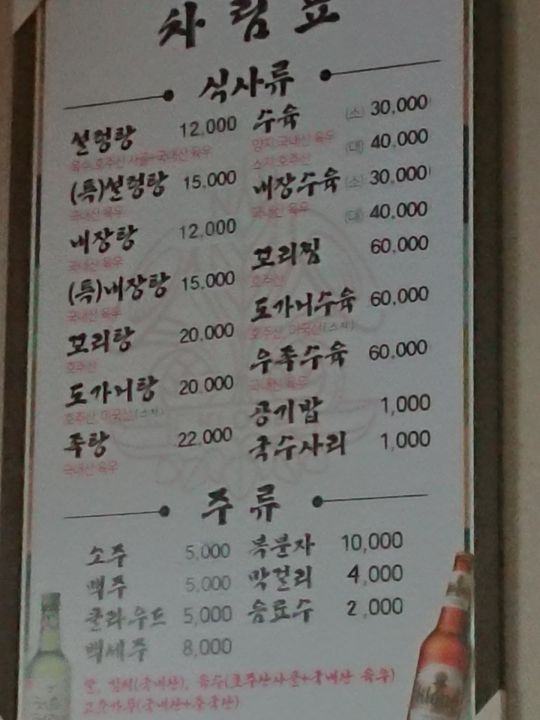 차림표
식사류
설렁탕 12,000
육수:호주산 사골+국내산 육우
(특)설렁탕 15,000
국내산 육우
내장탕 12,000
국내산 육우
(특)내장탕 15,000
국내산 육우
꼬리탕 20,000
호주산
도가니탕 20,000
호주산, 미국산(스지)
족탕 22,000
국내산 육우
수육 (소) 30,000
양지:국내산 육우
(대) 40,000
스지:호주산
내장수육 (소) 30,000
국내산 육우
(대) 40,000
꼬리찜 60,000
호주산
도가니수육 60,000
호주산, 미국산(스지)
우족수육 60,000
국내산 육우
공기밥 1,000
국수사리 1,000
주류
소주 5,000
맥주 5,000
클라우드 5,000
백세주 8,000
복분자 10,000
막걸리 4,000
음료수 2,000
쌀, 김치(국내산), 육수(호주산사골+국내산 육우)
고추가루(국내산+중국산)